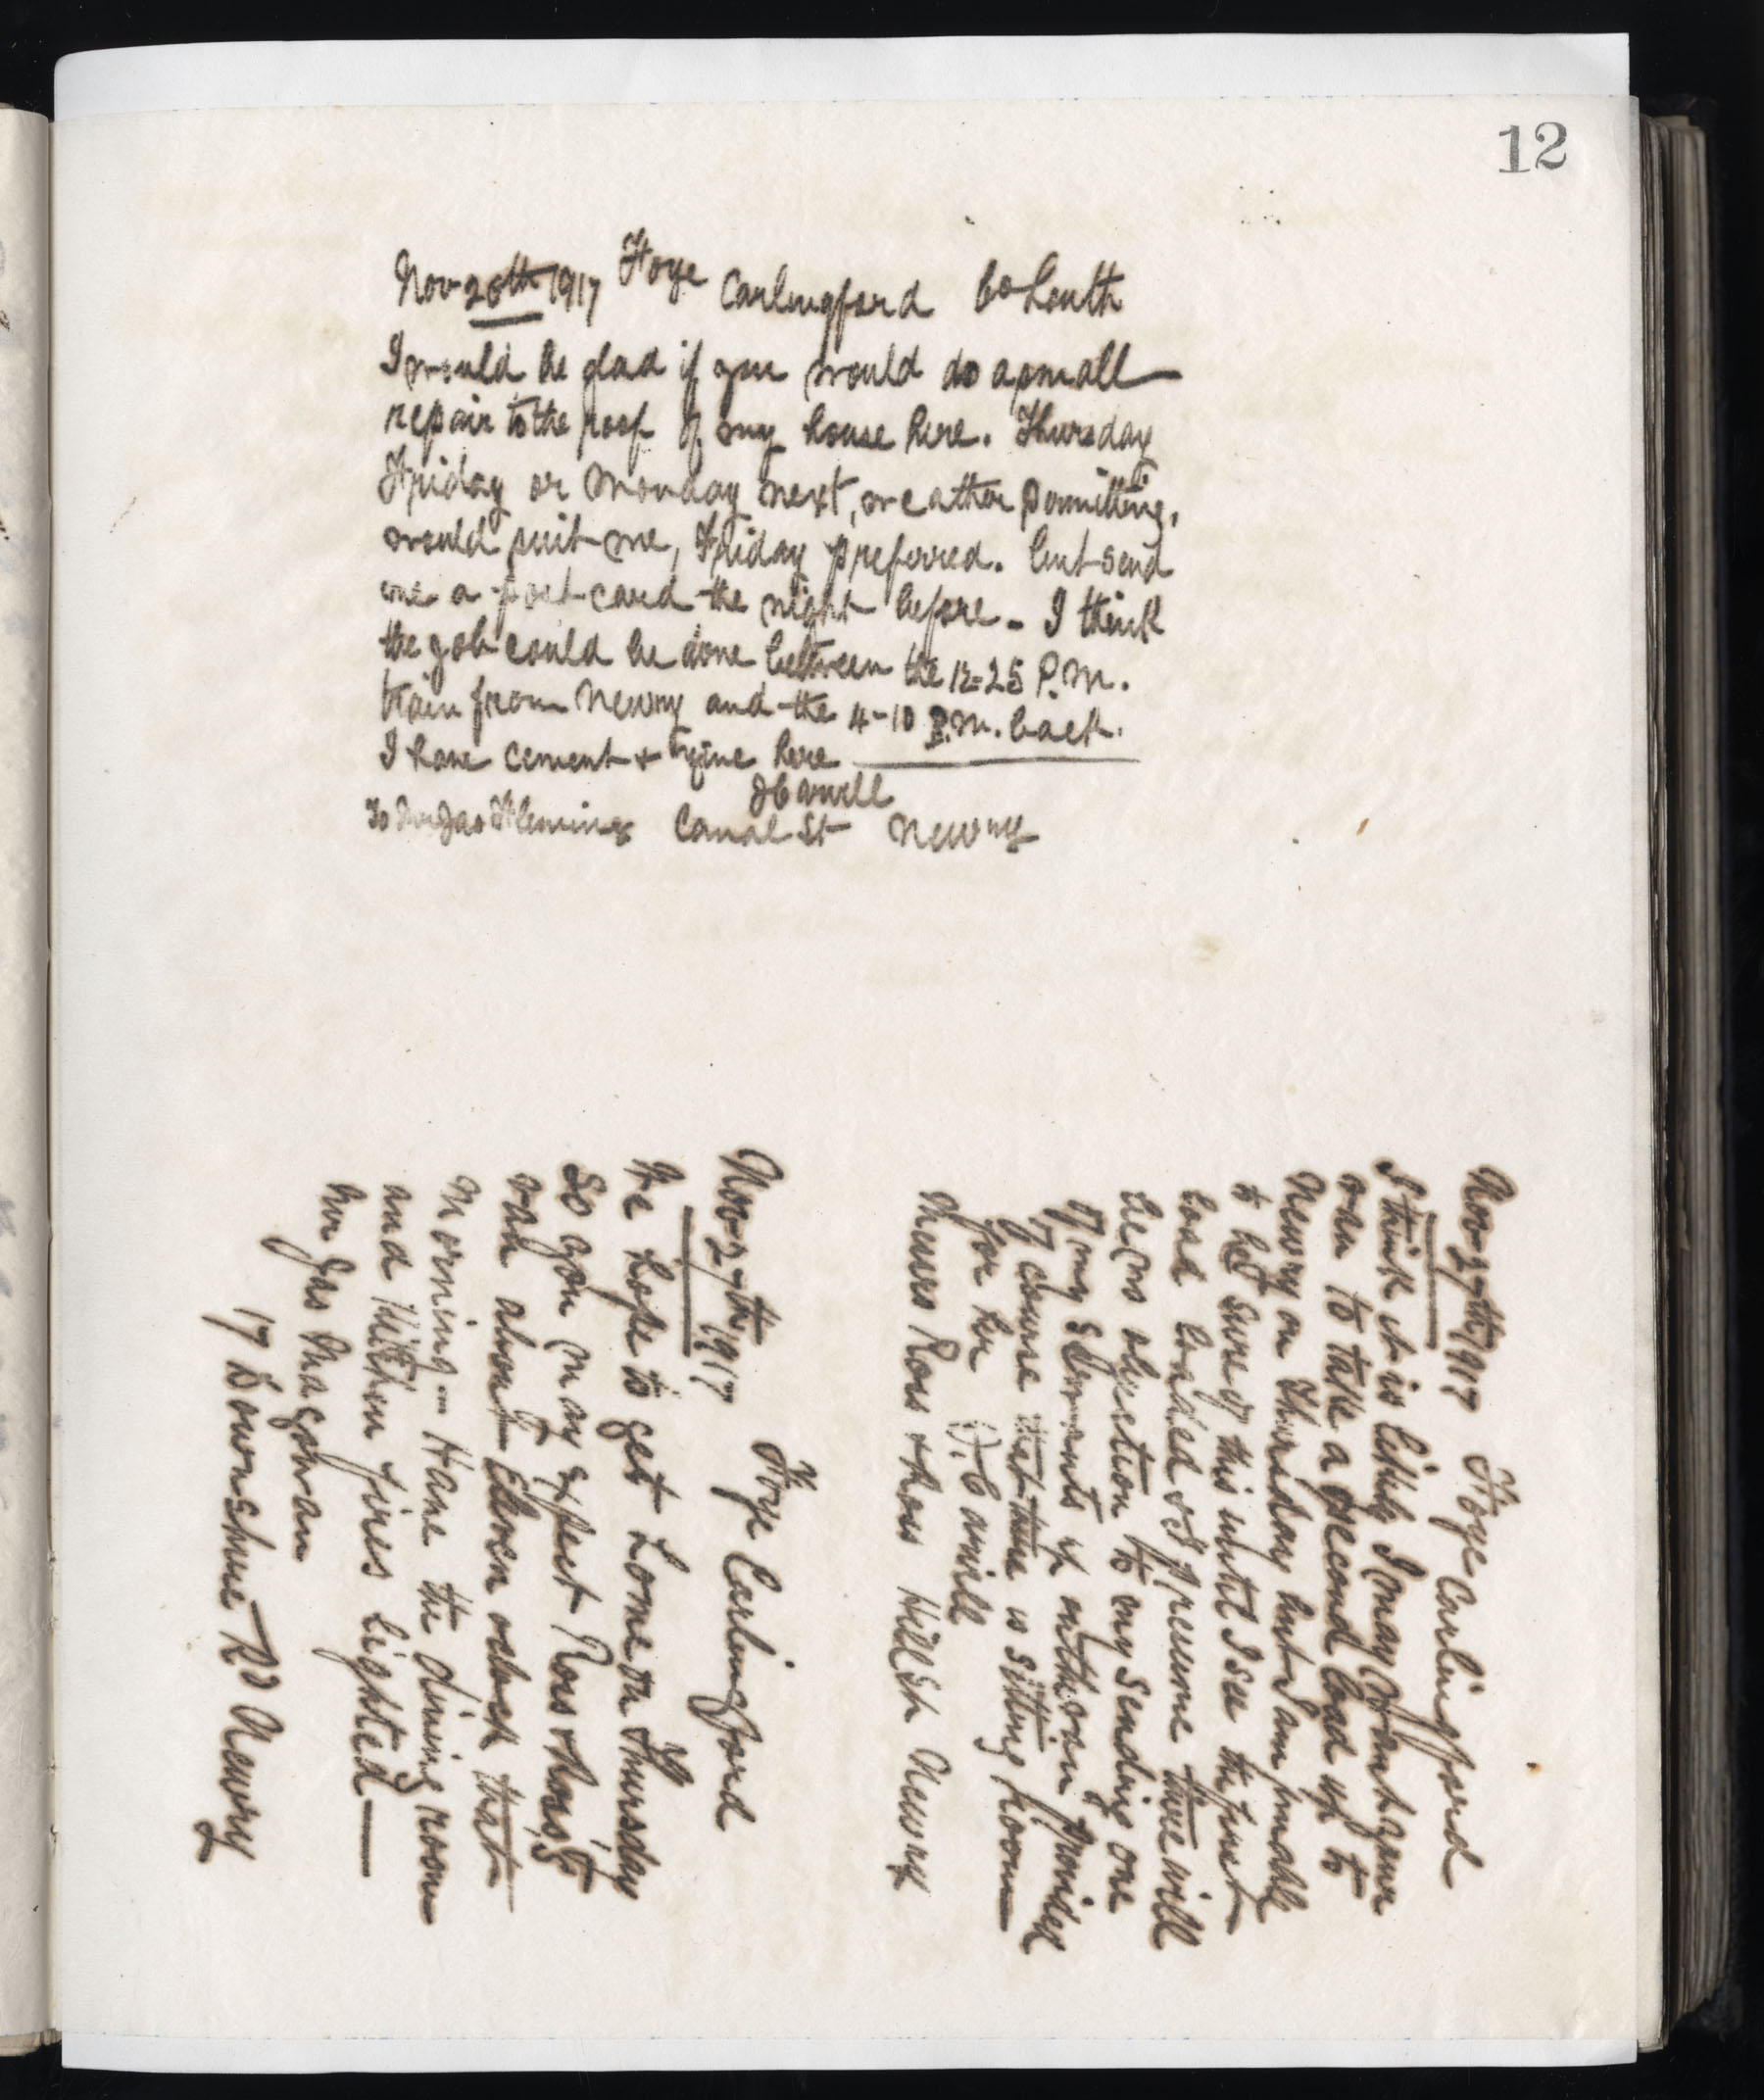 12
Nov 20th 1917 Foye Carlingford Co Louth
I would be glad if you would do a small
repair to the roof of my house here. Thursday
Friday or Monday next, weather permitting,
would suit me, Friday preferred. but send
me a post card the night before - I think
the job could be done between the 12-25 P.M.
train from Newry and the 4-10 P.M. back.
I have cement & here
JCarvill
To Mr Jas Fleming Canal St Newry
Nov 27th 1917 Foye Carlingford
I think it is likely I may want your
van to take a second load up to
Newry on Thursday but I am unable
to be sure of this until I see the first
load loaded & I presume there will
be no objection to my sending one
of my servants up with van provided
of course that there is sitting room
for her JCarvill
Messrs Ross & Ross Hill St Newry
Nov 27th 1917 Foye Carlingford
We hope to get home on Thursday
So you may expect Ross & Ross's
van about Eleven oclock that
Morning - Have the dining room
and kitchen fires lighted
Mr Jas Magowan
17 Downshire Rd Newry